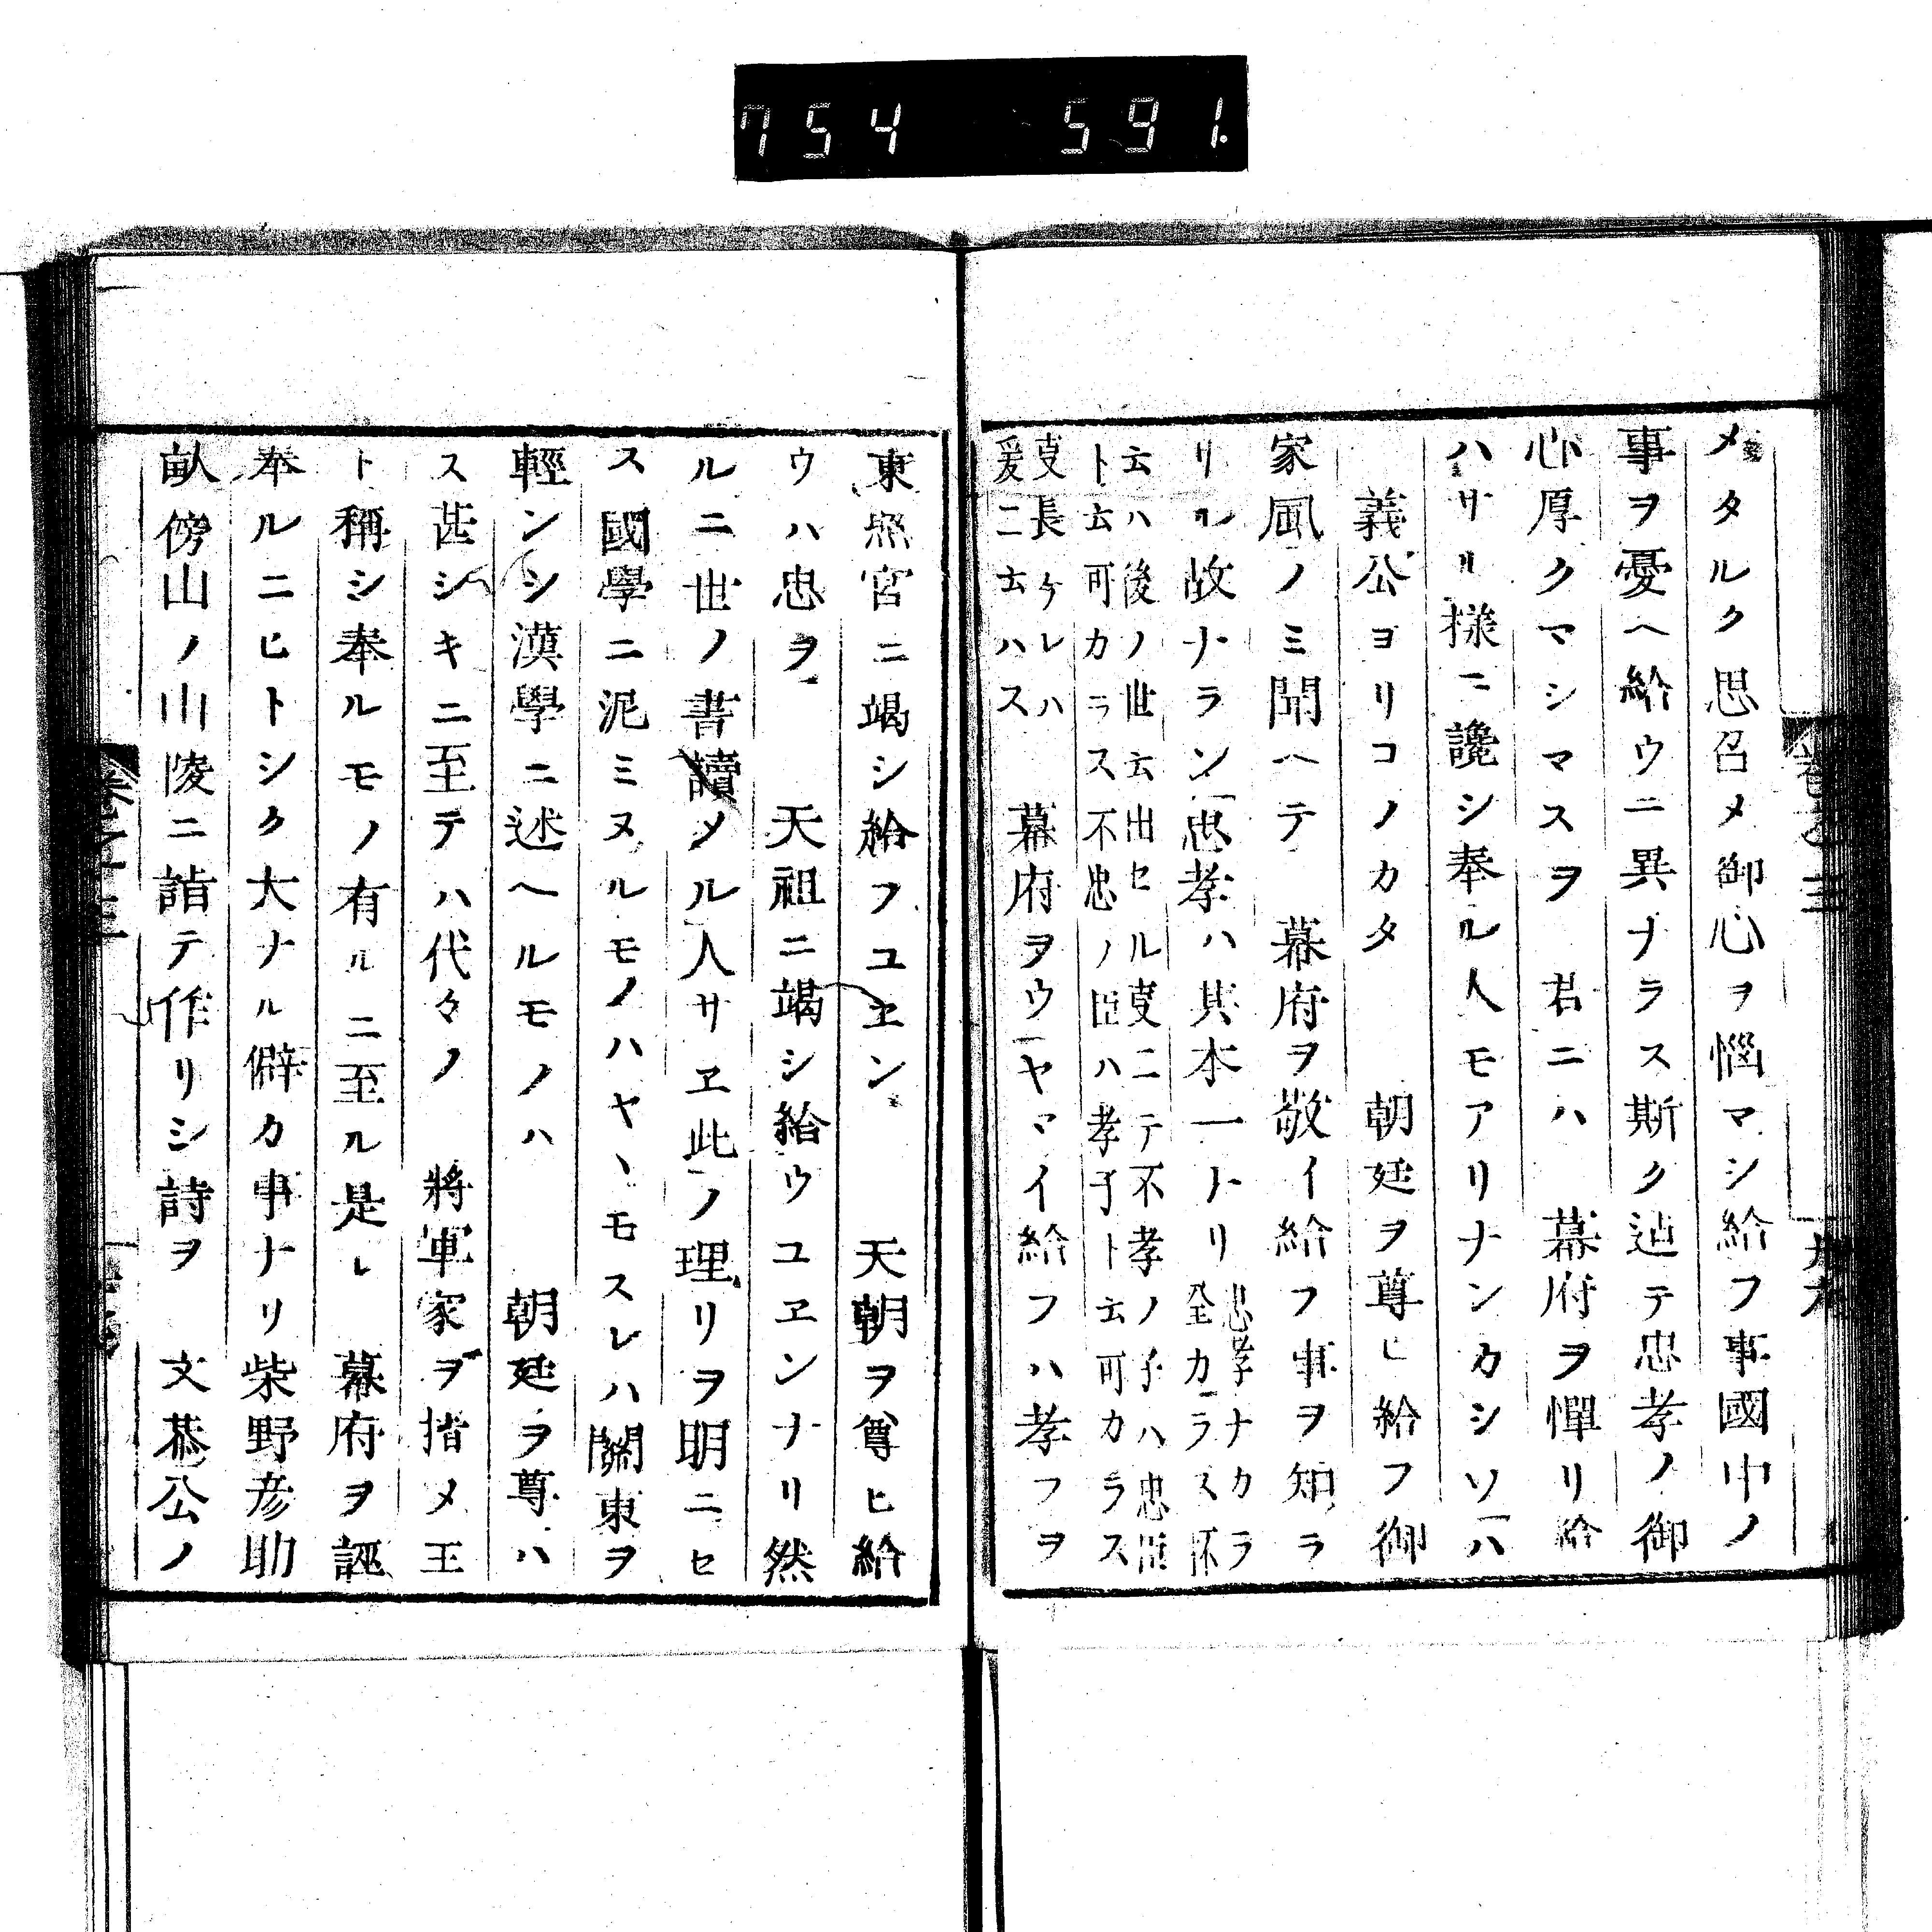 754 591
メタルク思召メ御心ヲ惱マシ給フ事國中ノ
事ヲ憂ヘ給ウニ異ナラス斯ク迠テ忠孝ノ御
心厚クマシマスヲ 君ニハ 幕府ヲ憚リ給
ハサル様ニ讒シ奉ル人モアリナンカシソハ
義公ヨリコノカタ 朝廷ヲ尊ヒ給フ御
家風ノミ聞ヘテ 幕府ヲ敬イ給フ事ヲ知ラ
サル故ナラン忠孝ハ其本一トリ忠孝ナカラ
全カラス不
云ハ後ノ世云出セル叓ニテ不孝ノ子ハ忠臣
ト云可カラス不忠ノ臣ハ孝子ト云可カラス
叓長ケレハ
爰ニ云ハス 幕府ヲウヤマイ給フハ孝フヲ
東照宮ニ竭シ給フユヱン 天朝ヲ尊ヒ給
ウハ忠ヲ 天祖ニ竭シ給ウユヱンナリ然
ルニ世ノ書讀メル人サヱ此ノ理リヲ明ニセ
ス國學ニ泥ミヌルモノハヤヽモスレハ關東ヲ
輕ンシ漢學ニ述ヘルモノハ 朝廷ヲ尊ハ
ス甚シキニ至テハ代々ノ 將軍家ヲ指メ王
ト稱シ奉ルモノ有ルニ至ル是レ 幕府ヲ誣
奉ルニヒトシク大ナル僻カ事ナリ柴野彦助
畝傍山ノ山陵ニ詣テ作リシ詩ヲ 文恭公ノ